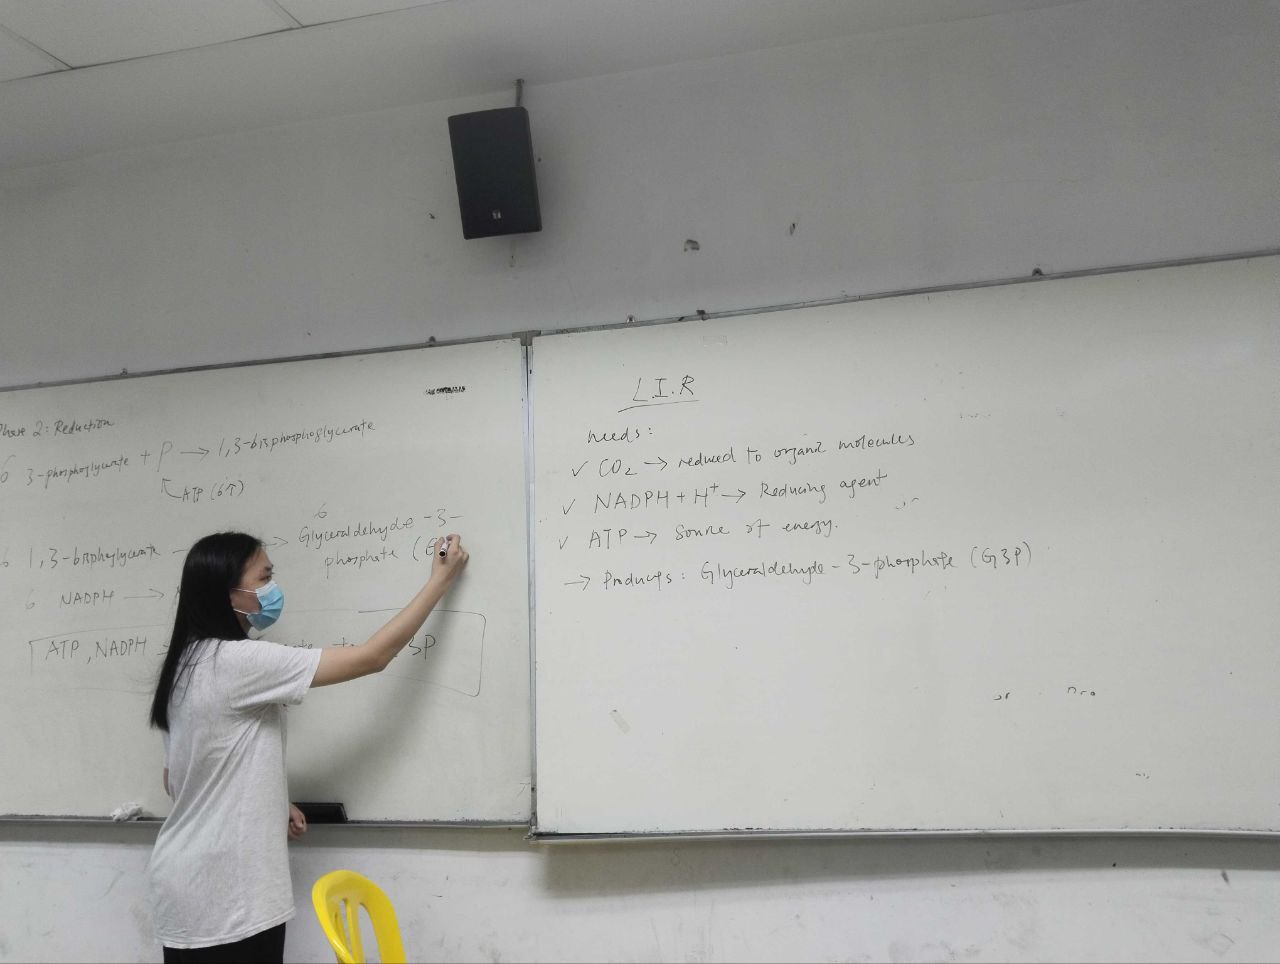 Phase 2: Reduction
6 3-phosphoglycerate + P → 1,3-bisphosphoglycerate
ATP (6个)
6
6 1,3-bisphoglycerate → Glyceraldehyde-3-
phosphate (G
6 NADPH →
ATP, NADPH 3P
L.I.R
needs:
✓ CO₂ → reduced to organic molecules
✓ NADPH + H⁺ → Reducing agent
✓ ATP → Source of energy.
→ Products: Glyceraldehyde-3-phosphate (G3P)